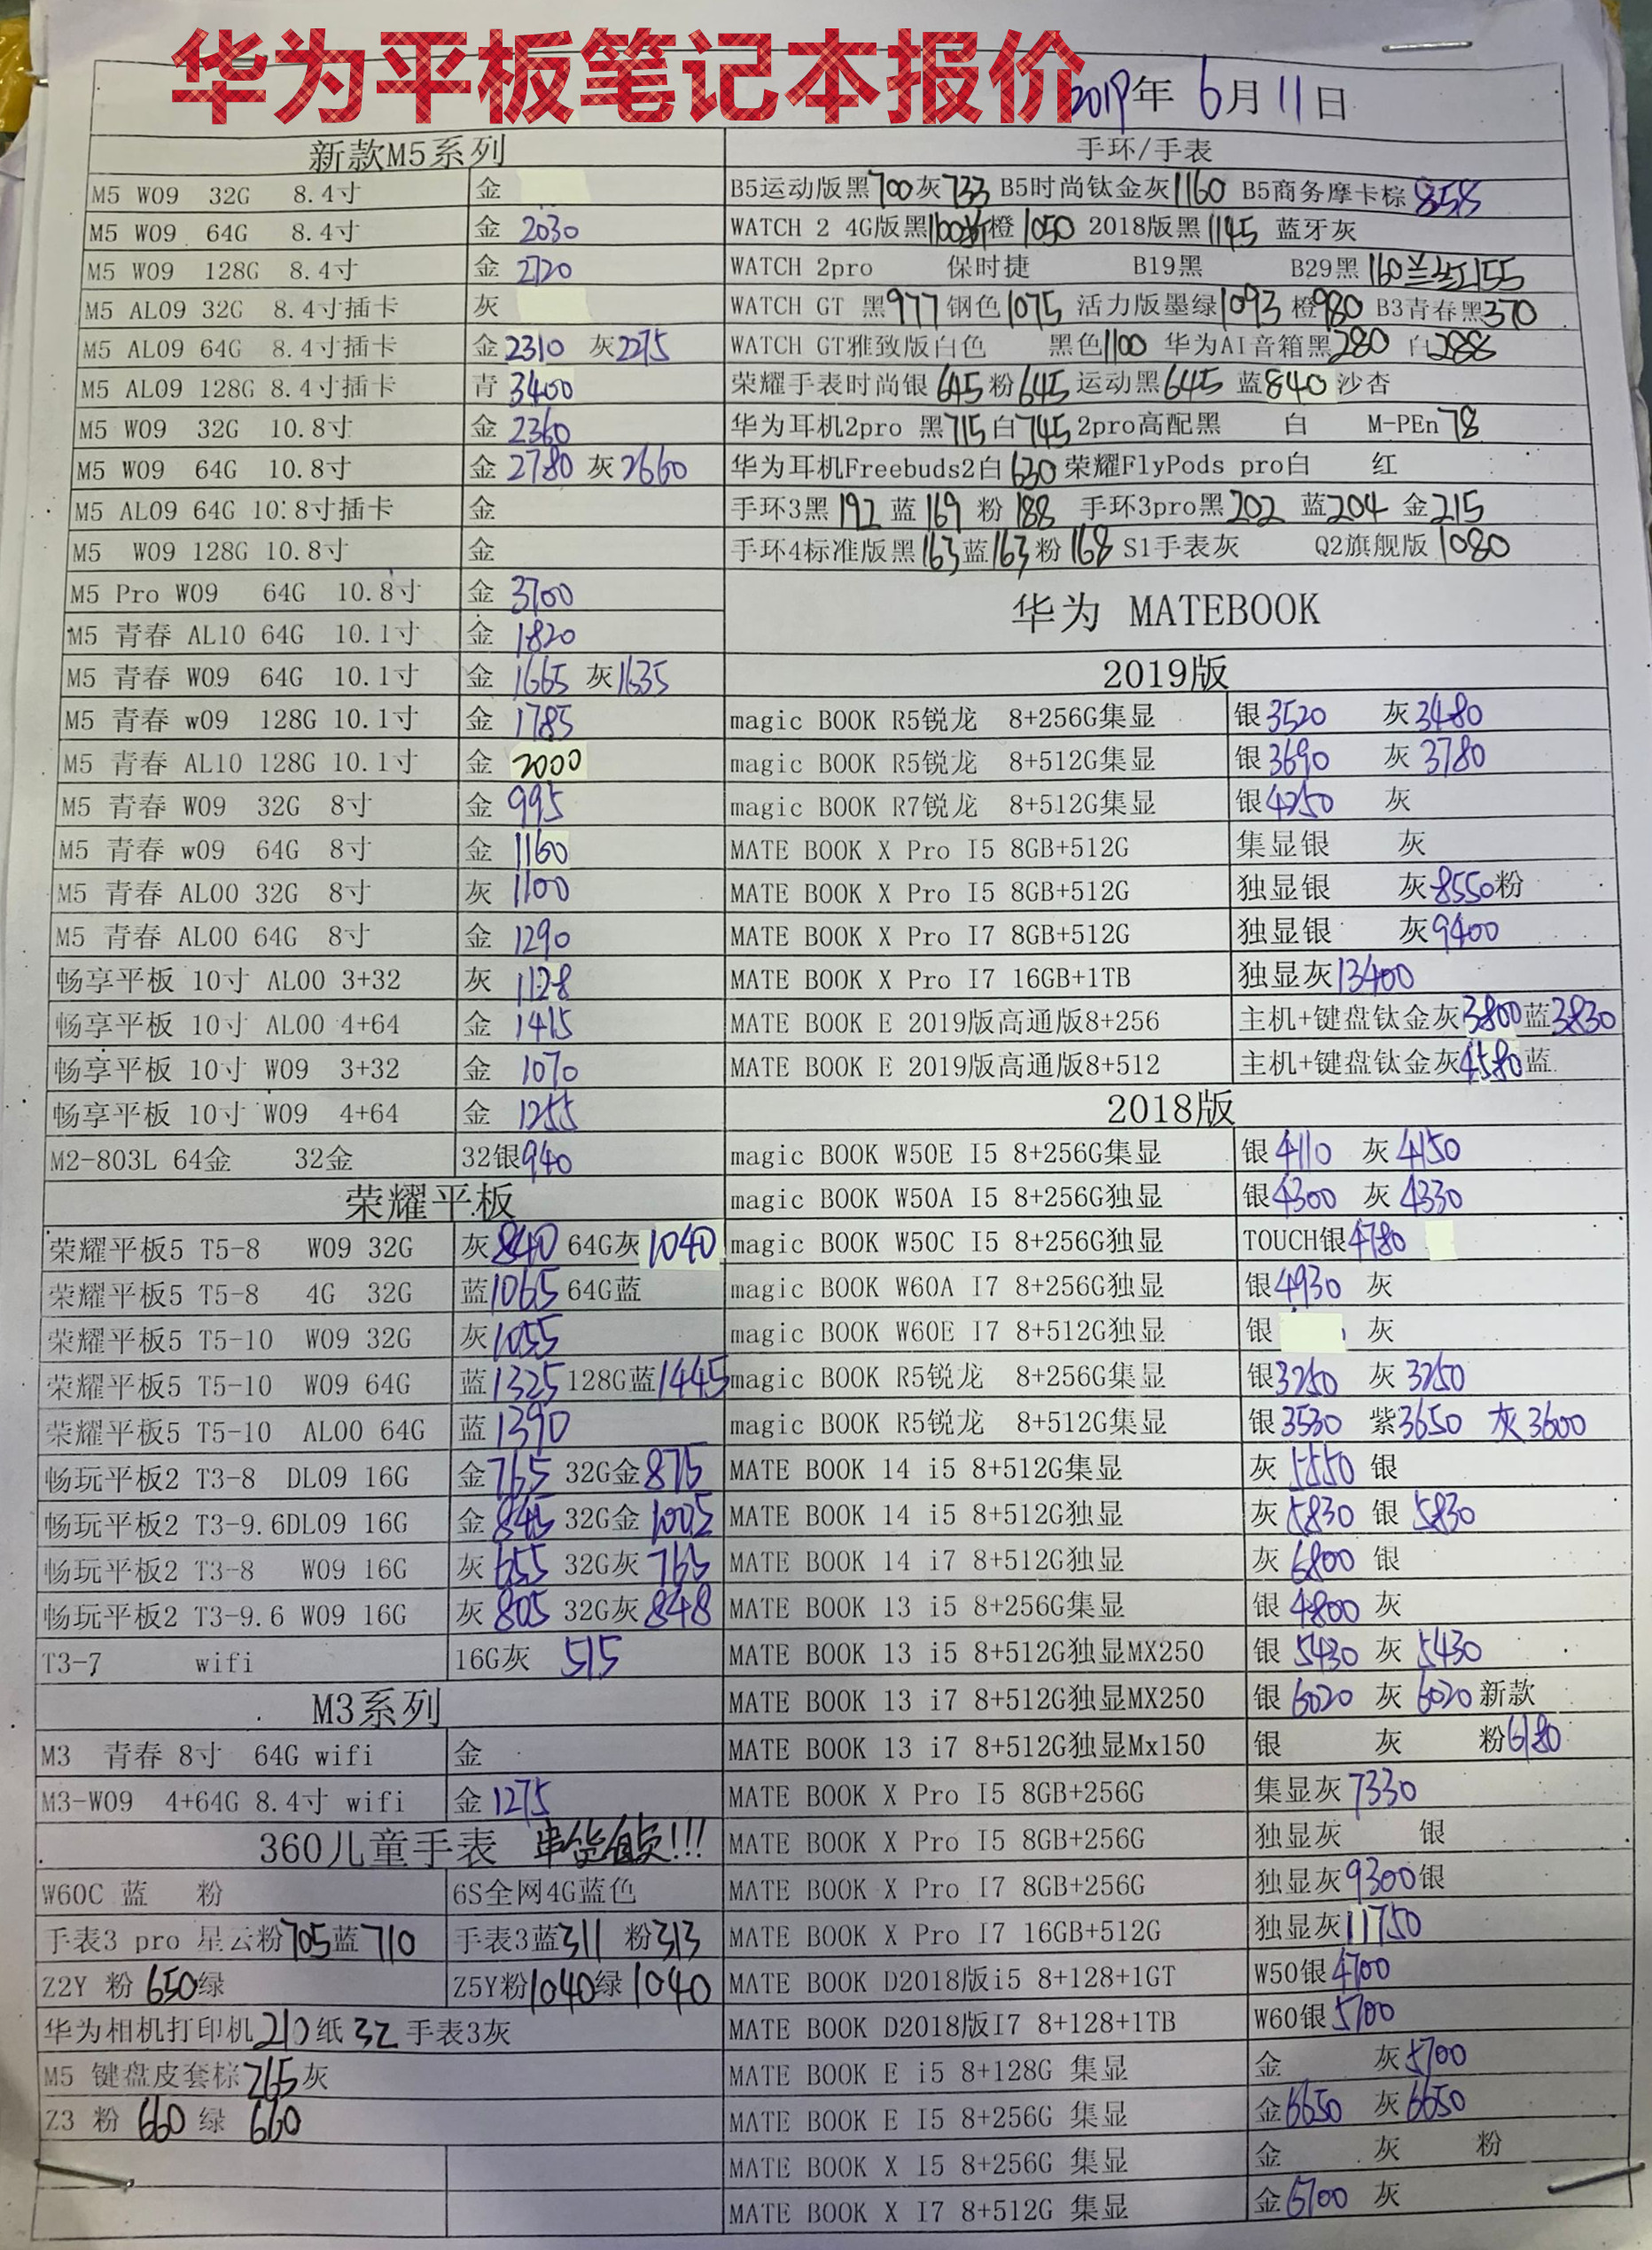 华为平板笔记本报价
2019年 6月11日
新款M5系列
M5 W09 32G 8.4寸 金
M5 W09 64G 8.4寸 金 2030
M5 W09 128G 8.4寸 金 2720
M5 AL09 32G 8.4寸插卡 灰
M5 AL09 64G 8.4寸插卡 金2310 灰2275
M5 AL09 128G 8.4寸插卡 青 3400
M5 W09 32G 10.8寸 金 2360
M5 W09 64G 10.8寸 金 2780 灰2660
M5 AL09 64G 10.8寸插卡 金
M5 W09 128G 10.8寸 金
M5 Pro W09 64G 10.8寸 金 3700
M5 青春 AL10 64G 10.1寸 金 1820
M5 青春 W09 64G 10.1寸 金 1665 灰1635
M5 青春 w09 128G 10.1寸 金 1785
M5 青春 AL10 128G 10.1寸 金 2000
M5 青春 W09 32G 8寸 金 995
M5 青春 w09 64G 8寸 金 1160
M5 青春 AL00 32G 8寸 灰 1100
M5 青春 AL00 64G 8寸 金 1290
畅享平板 10寸 AL00 3+32 灰 1128
畅享平板 10寸 AL00 4+64 金 1415
畅享平板 10寸 W09 3+32 金 1070
畅享平板 10寸 W09 4+64 金 1255
M2-803L 64金 32金 32银940
荣耀平板
荣耀平板5 T5-8 W09 32G 灰840 64G灰1040
荣耀平板5 T5-8 4G 32G 蓝1065 64G蓝
荣耀平板5 T5-10 W09 32G 灰1055
荣耀平板5 T5-10 W09 64G 蓝1325 128G蓝1445
荣耀平板5 T5-10 AL00 64G 蓝1390
畅玩平板2 T3-8 DL09 16G 金765 32G金875
畅玩平板2 T3-9.6DL09 16G 金845 32G金1005
畅玩平板2 T3-8 W09 16G 灰655 32G灰765
畅玩平板2 T3-9.6 W09 16G 灰805 32G灰848
T3-7 wifi 16G灰 515
M3系列
M3 青春 8寸 64G wifi 金
M3-W09 4+64G 8.4寸 wifi 金1275
360儿童手表 串货自负!!!
W60C 蓝 粉 6S全网4G蓝色
手表3 pro 星云粉705蓝710 手表3蓝311 粉313
Z2Y 粉650绿 Z5Y粉1040绿1040
华为相机打印机210纸32手表3灰
M5 键盘皮套棕265灰
Z3 粉 660 绿 660
手环/手表
B5运动版黑700灰733 B5时尚钛金灰1160 B5商务摩卡棕858
WATCH 2 4G版黑1100 橙1050 2018版黑1145 蓝牙灰
WATCH 2pro 保时捷 B19黑 B29黑160兰红155
WATCH GT 黑977钢色1075 活力版墨绿1093橙980 B3青春黑370
WATCH GT雅致版白色 黑色1100 华为AI音箱黑280 白288
荣耀手表时尚银645粉645运动黑645 蓝840沙杏
华为耳机2pro 黑715白745 2pro高配黑 白 M-PEn78
华为耳机Freebuds2白630荣耀FlyPods pro白 红
手环3黑192蓝169 粉188 手环3pro黑202 蓝204 金215
手环4标准版黑163蓝163粉168 S1手表灰 Q2旗舰版1080
华为 MATEBOOK
2019版
magic BOOK R5锐龙 8+256G集显 银3520 灰3480
magic BOOK R5锐龙 8+512G集显 银3690 灰3780
magic BOOK R7锐龙 8+512G集显 银4250 灰
MATE BOOK X Pro I5 8GB+512G 集显银 灰
MATE BOOK X Pro I5 8GB+512G 独显银 灰8550粉
MATE BOOK X Pro I7 8GB+512G 独显银 灰9400
MATE BOOK X Pro I7 16GB+1TB 独显灰13400
MATE BOOK E 2019版高通版8+256 主机+键盘钛金灰3800蓝3830
MATE BOOK E 2019版高通版8+512 主机+键盘钛金灰4580蓝
2018版
magic BOOK W50E I5 8+256G集显 银4110 灰4150
magic BOOK W50A I5 8+256G独显 银4300 灰4330
magic BOOK W50C I5 8+256G独显 TOUCH银4780
magic BOOK W60A I7 8+256G独显 银4930 灰
magic BOOK W60E I7 8+512G独显 银 灰
magic BOOK R5锐龙 8+256G集显 银3250 灰3250
magic BOOK R5锐龙 8+512G集显 银3530 紫3650 灰3600
MATE BOOK 14 i5 8+512G集显 灰 5550 银
MATE BOOK 14 i5 8+512G独显 灰5830 银 5830
MATE BOOK 14 i7 8+512G独显 灰6800 银
MATE BOOK 13 i5 8+256G集显 银4800 灰
MATE BOOK 13 i5 8+512G独显MX250 银5430 灰5430
MATE BOOK 13 i7 8+512G独显MX250 银6020 灰6020新款
MATE BOOK 13 i7 8+512G独显Mx150 银 灰 粉6180
MATE BOOK X Pro I5 8GB+256G 集显灰7330
MATE BOOK X Pro I5 8GB+256G 独显灰 银
MATE BOOK X Pro I7 8GB+256G 独显灰9300银
MATE BOOK X Pro I7 16GB+512G 独显灰11750
MATE BOOK D2018版i5 8+128+1GT W50银4700
MATE BOOK D2018版I7 8+128+1TB W60银5700
MATE BOOK E i5 8+128G 集显 金 灰5700
MATE BOOK E I5 8+256G 集显 金6650 灰6650
MATE BOOK X I5 8+256G 集显 金 灰 粉
MATE BOOK X I7 8+512G 集显 金6700 灰